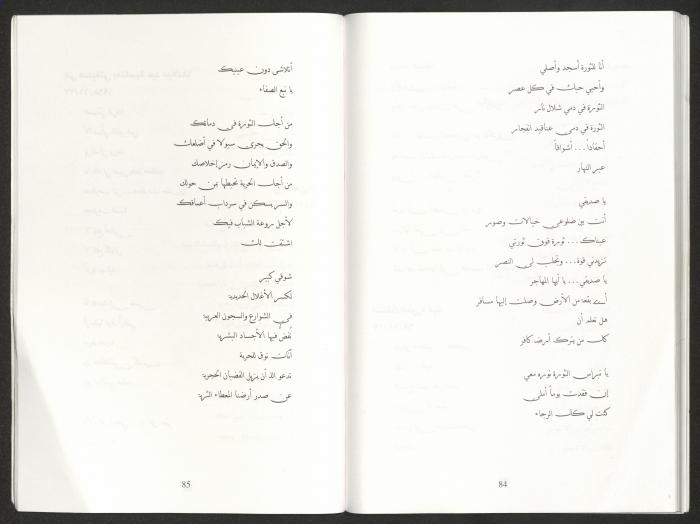 أنا للثورة أسجد وأصلي
وأحيي حبك في كل عصر
الثورة في دمي شلال ثائر
الثورة في دمي عناقيد انفجار
أحقاداً... أشواقاً
عبر النهار
يا صديقي
أنت بين ضلوعي خيالات وصور
عيناك... ثورة فوق ثورتي
تزيدني قوة... وتجلب لي النصر
يا صديقي... يا أيها المهاجر
أي بقعة من الأرض وصلت إليها مسافر
هل تعلم أن
كل من يترك أرضه كافر
يا نبراس الثورة ثورة معي
إن فقدت يوماً أملي
كنت لي كل الرجاء
84
أتلاشى دون عينيك
يا نبع الصفاء
من أجل الثورة في دمائك
والحق يجري سيولا في أضلعك
والصدق والإيمان رمز إخلاصك
من أجل الحرية تحيطها بمن حولك
والسر يسكن في سرداب أعماقك
لأجل روعة الشباب فيك
اشتقت لك
شوقي كبير
لكسر الأغلال الحديدية
في الشوارع والسجون العربية
تُفضّ فيها الأجساد البشرية
أنّات توق للحرية
تدعو الله أن يزيل القضبان الحجرية
عن صدر أرضنا المعطاء الثرية
85